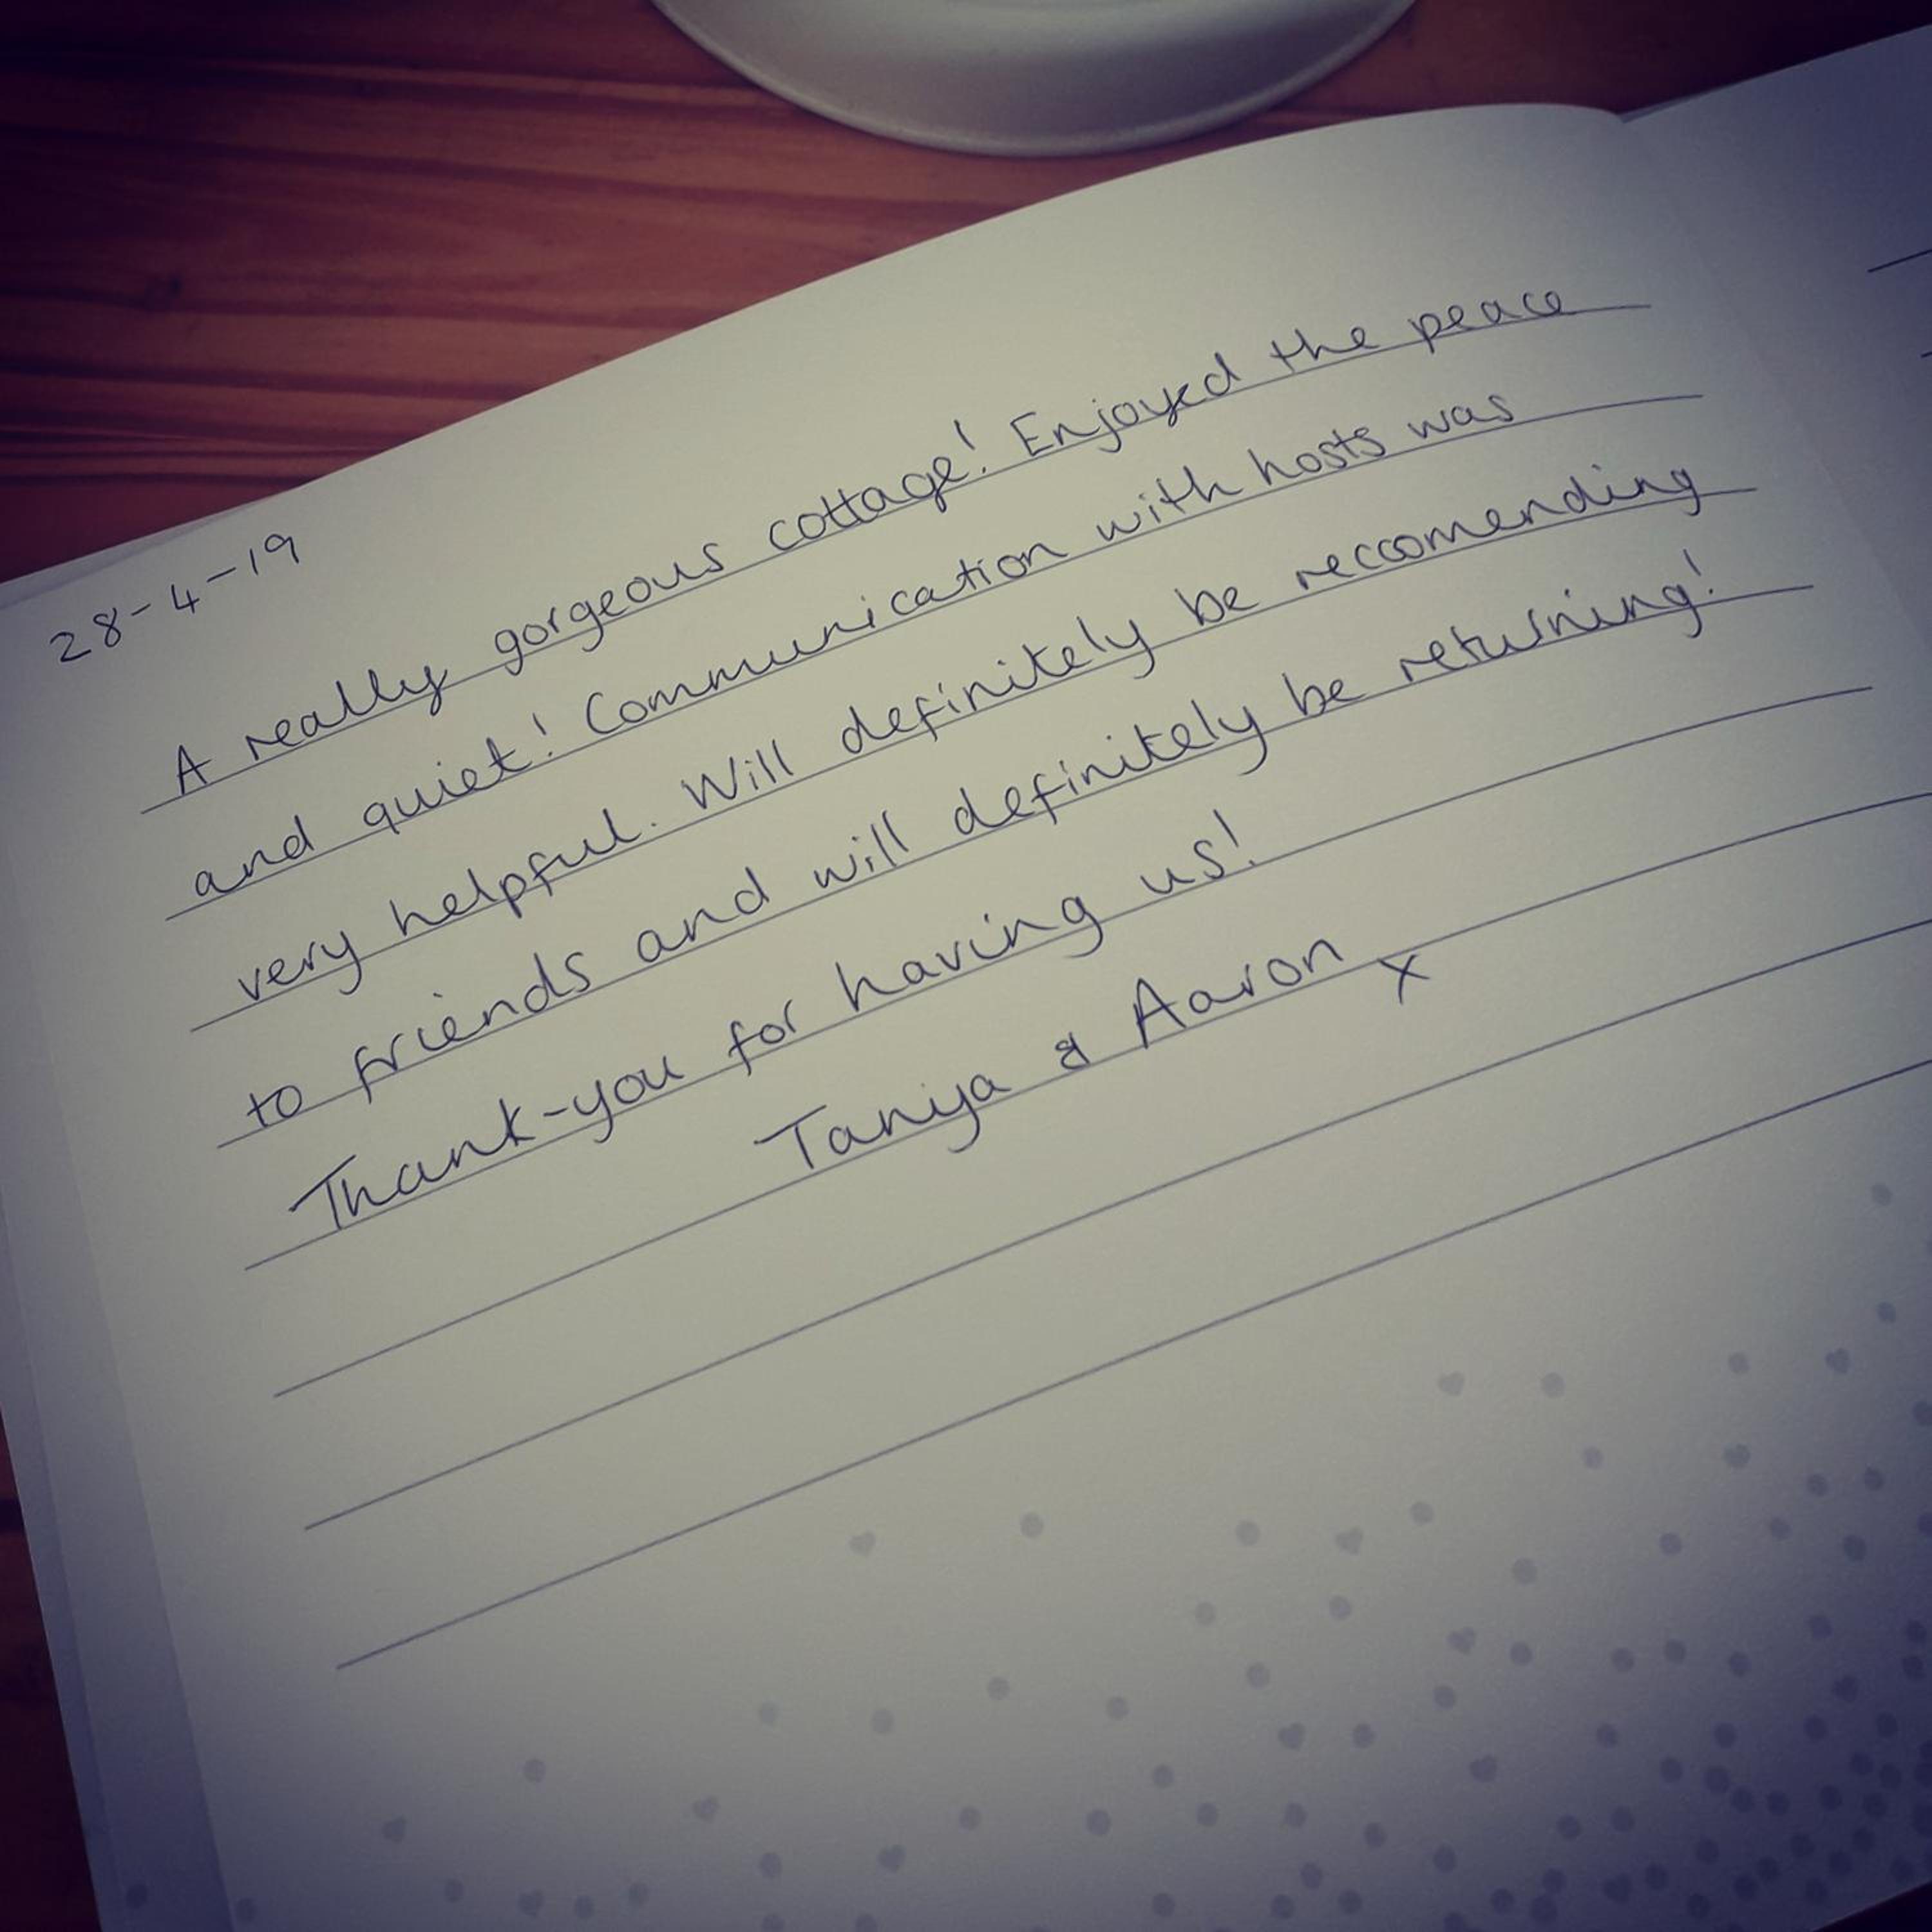 28-4-19
A really gorgeous cottage! Enjoyed the peace
and quiet! Communication with hosts was
very helpful. Will definitely be reccomending
to friends and will definitely be returning!
Thank-you for having us!
Tanya & Aaron x